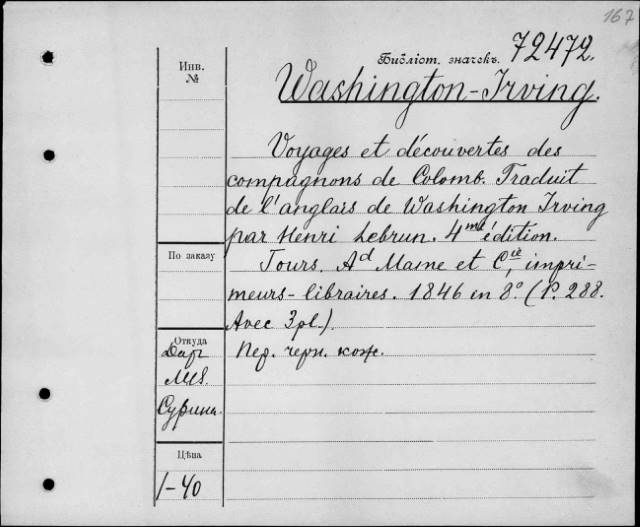 167
Библіот. значекъ. 72472.
Инв.
№
Washington-Irving.
Voyages et découvertes des
compagnons de Colomb. Traduit
de l'anglais de Washington Irving
par Henri Lebrun. 4me édition.
По заказу
Tours. Ad Mame et Cie, impri-
meurs-libraires. 1846 in 8º. (P. 288.
Avec 3 pl.).
Откуда
Даръ
Пер. черн. кож.
Цѣна
1-40